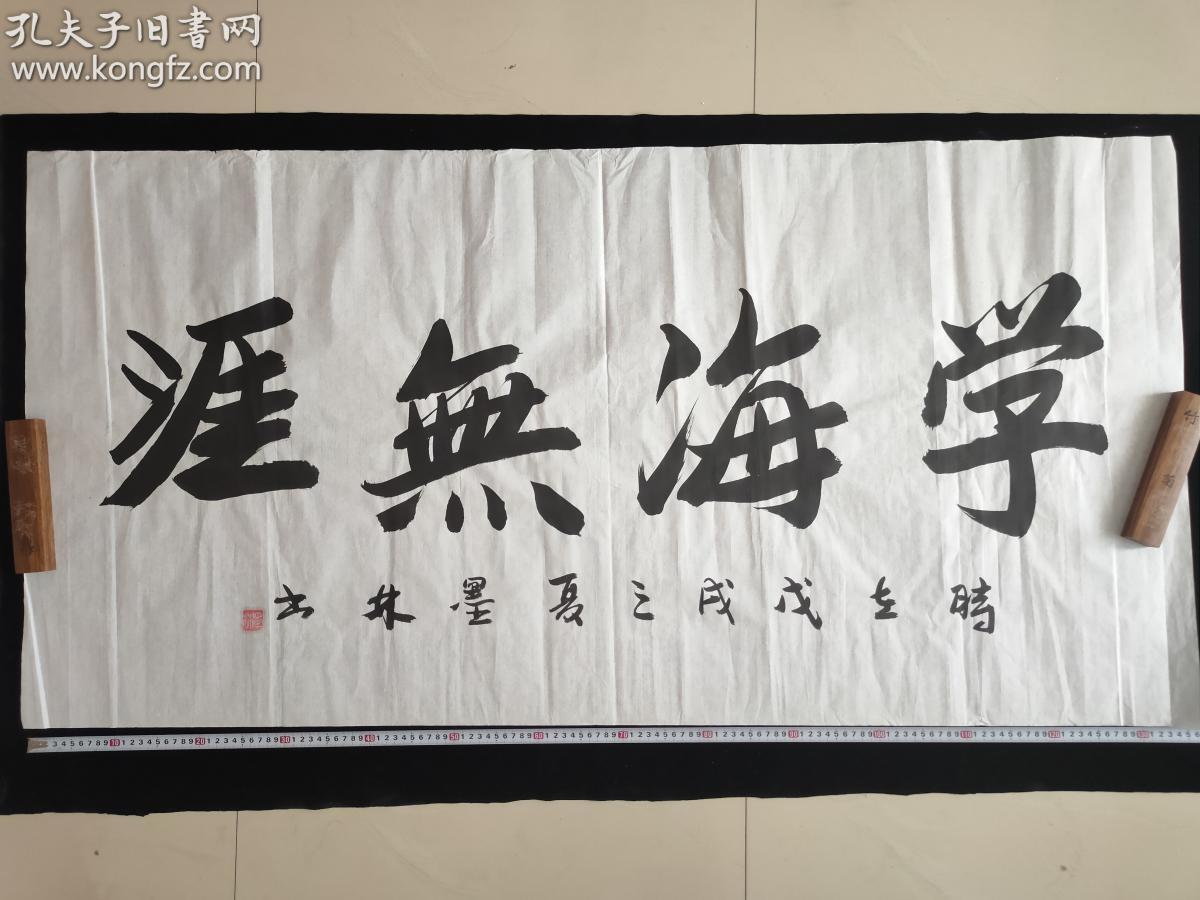 孔夫子旧書网
www.kongfz.com
学海無涯
時在戊戌之夏墨林书